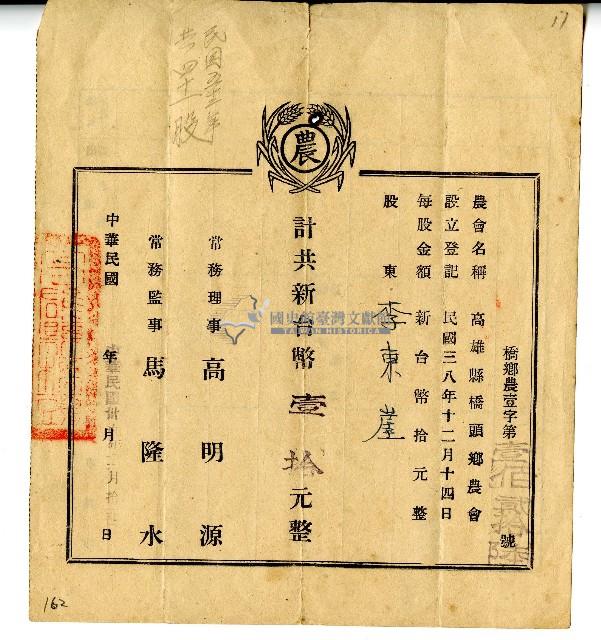 17
民國五十三年
共四十一股
農
橋鄉農壹字第壹佰貳拾陸號
農會名稱 高雄縣橋頭鄉農會
設立登記 民國三八年十二月十四日
每股金額 新台幣拾元整
股東 李東崖
計共新台幣壹拾元整
常務理事 高明源
常務監事 馬隆水
中華民國 年 月 日
國史館臺灣文獻館
TAIWAN HISTORICA
162